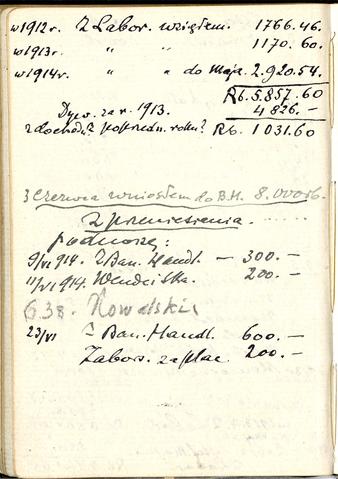 w 1912 r. Z Labor. wziąłem. 1766.46.
w 1913 r. " " 1170.60.
w 1914 r. " " do Maja. 2.920.54.
Rb. 5.857.60
Dyw. za r. 1913. 4826.—
z dochod. z poprzedn. roku? Rb. 1031.60
3 Czerwca wniosłem do B.H. 8.000 rb.
Z przeniesienia
podnoszę:
9/VI 914. Z Ban. Handl. — 300.—
11/VI 914. 200.—
638. Kowalski
23/VI Z Ban. Handl. 600.—
Labor. zapłac. 200.—